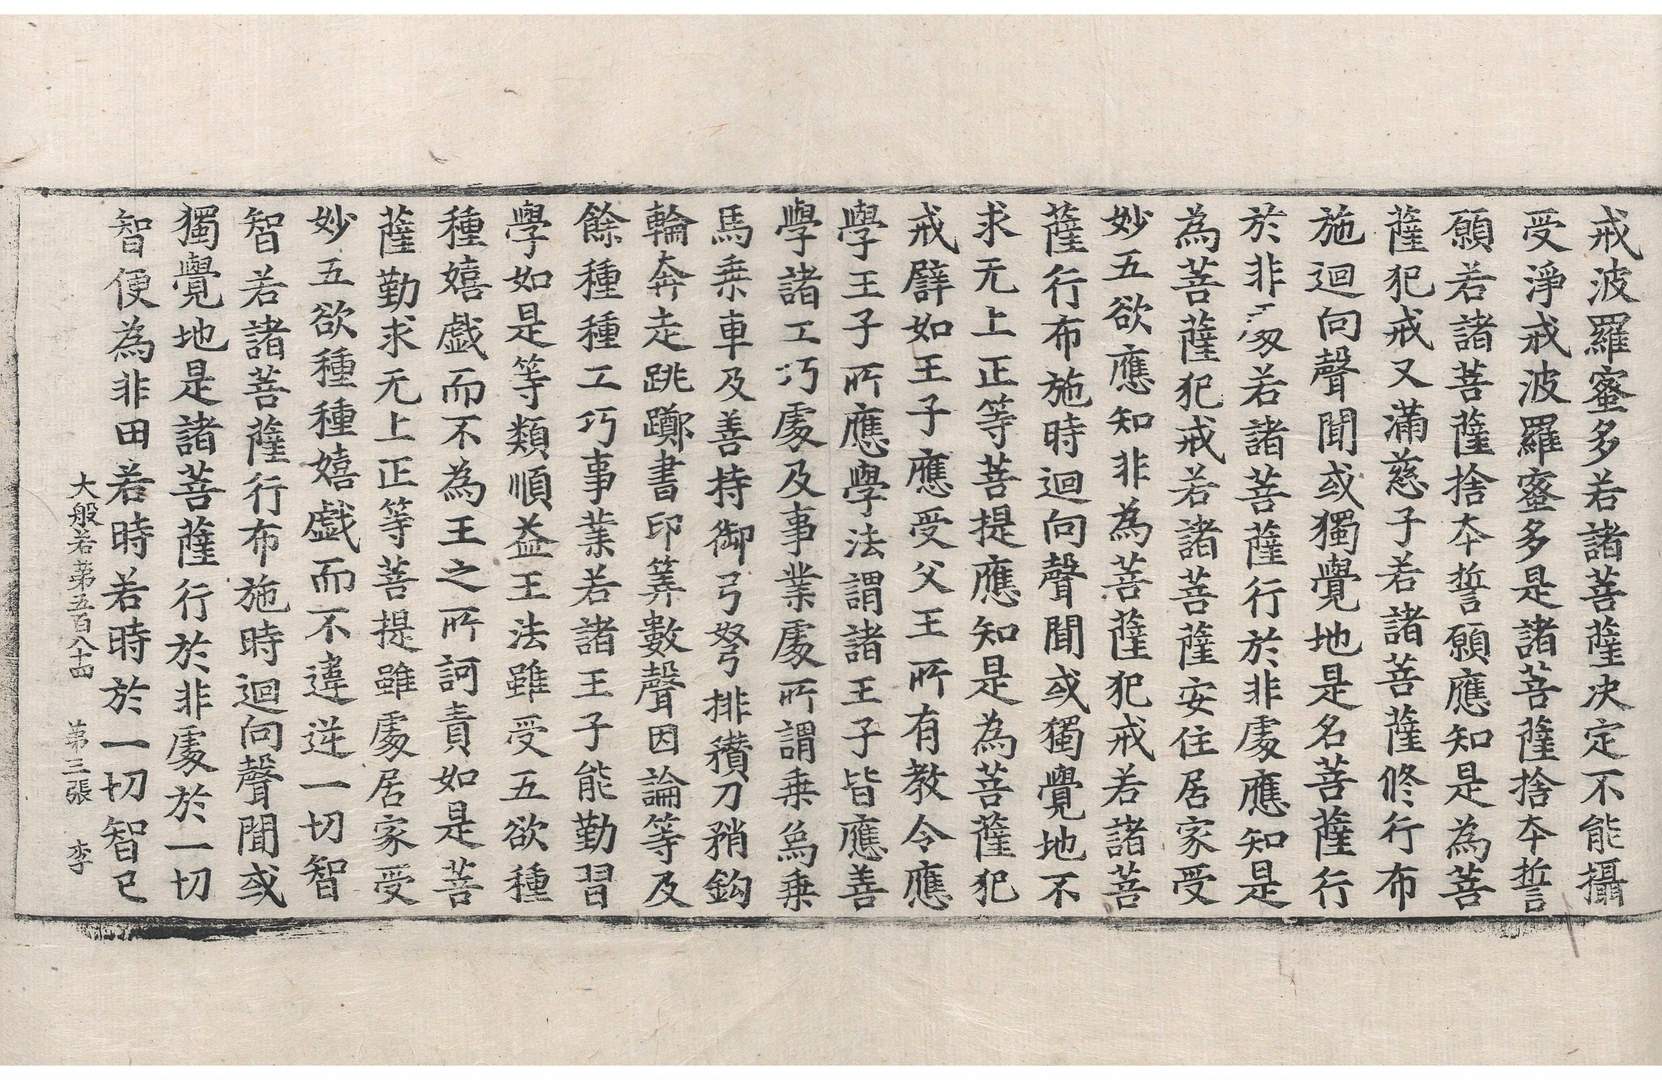 戒波羅蜜多若諸菩薩决定不能攝
受淨戒波羅蜜多是諸菩薩捨夲誓
願若諸菩薩捨夲誓願應知是為菩
薩犯戒又滿慈子若諸菩薩修行布
施迴向聲聞或獨覺地是名菩薩行
於非䖏若諸菩薩行於非處應知是
為菩薩犯戒若諸菩薩安住居家受
妙五欲應知非為菩薩犯戒若諸菩
薩行布施時迴向聲聞或獨覺地不
求无上正等菩提應知是為菩薩犯
戒譬如王子應受父王所有教令應
學王子所應學法謂諸王子皆應善
學諸工巧處及事業處所謂乗烏乗
馬乗車及善持御弓弩排䂎刀矟鈎
輪奔走跳躑書印筭數聲因論等及
餘種種工巧事業若諸王子能勤習
學如是等類順益王法雖受五欲種
種嬉戲而不為王之所訶責如是菩
薩勤求无上正等菩提雖處居家受
妙五欲種種嬉戲而不違逆一切智
智若諸菩薩行布施時迴向聲聞或
獨覺地是諸菩薩行於非處於一切
智便為非田若時若時於一切智已
大般若第五百八十四 第三張 李